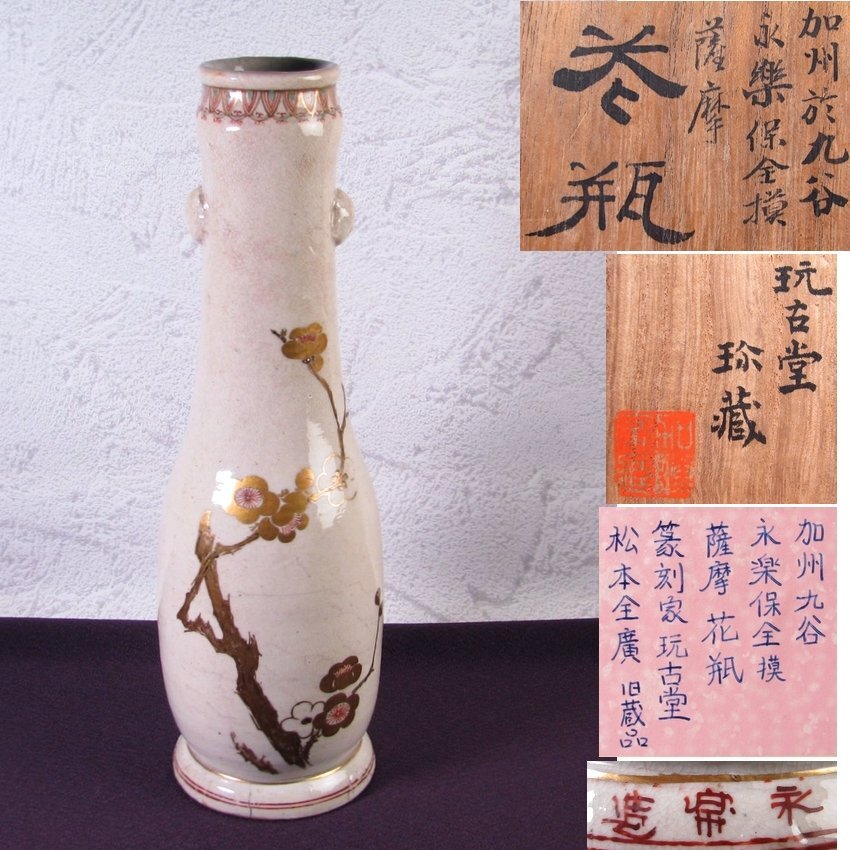 加州於九谷
永樂保全摸
薩摩
花瓶
玩古堂
珍藏
加州九谷
永楽保全摸
薩摩 花瓶
篆刻家 玩古堂
松本全廣 旧蔵品
永樂造